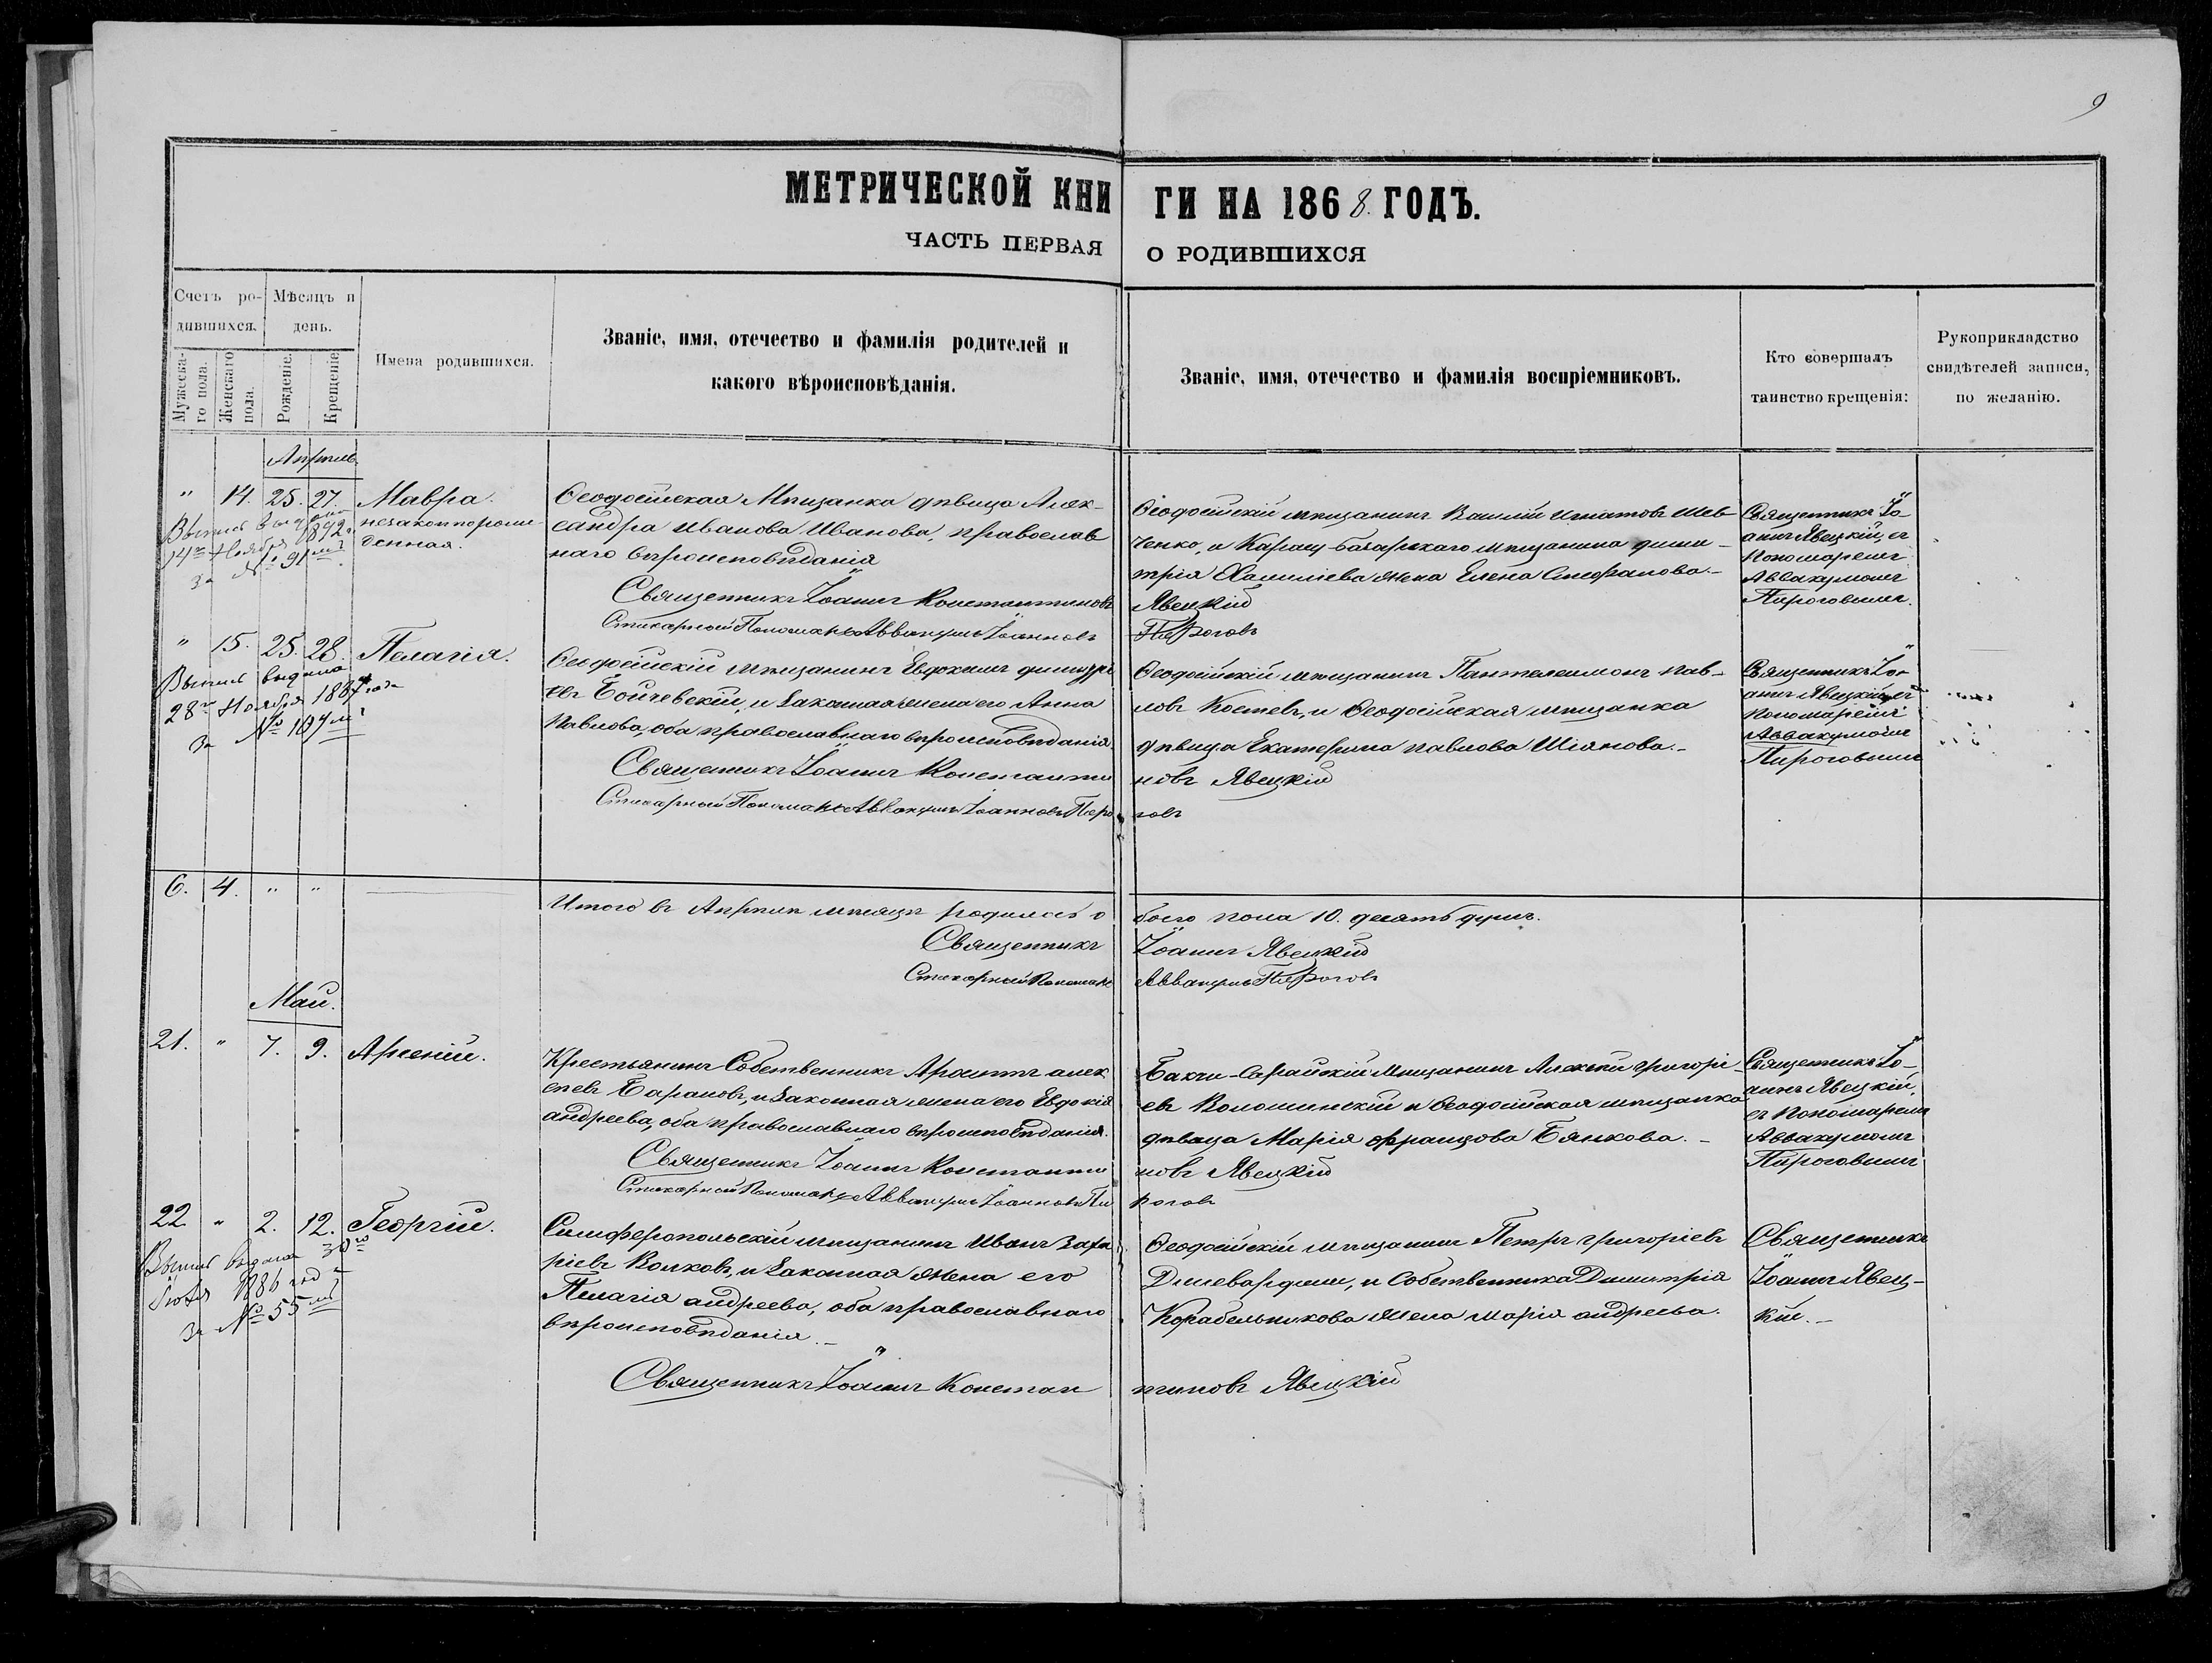 9
МЕТРИЧЕСКОЙ КНИ ГИ НА 1868. ГОДЪ.
ЧАСТЬ ПЕРВАЯ О РОДИВШИХСЯ
Счетъ ро-
дившихся.
Мѣсяцъ и
день.
Мужеска-
го пола.
Женскаго
пола.
Рожденіе.
Крещеніе
Имена родившихся.
Званіе, имя, отечество и фамилія родителей и
какого вѣроисповѣданія.
Званіе, имя, отечество и фамилія воспріемниковъ.
Кто совершалъ
таинство крещенія:
Рукоприкладство
свидѣтелей записи,
по желанію.
Апрѣль.
" 14. 25. 27. Мавра.
незаконнорож-
денная.
Выпись выдана
14го Ноября 1892 г.
За № 91мъ.
Ѳеодосійская Мѣщанка дѣвица Алек-
сандра Иванова Иванова, православ
наго вѣроисповѣданія
Священникъ Іоаннъ Константиновъ
Стихарный Пономарь Аввакумъ Іоанновъ
Ѳеодосійскій мѣщанинъ Василій Игнатовъ Шев
ченко, и Карасу-базарскаго мѣщанина дими-
трія жена Елена Стефанова.-
Явецкій
Пироговъ
Священникъ Іо-
аннъ Явецкій, съ
Пономаремъ
Аввакумомъ
Пироговымъ.
" 15. 25. 28. Пелагія.
Выпись выдана
28го Ноября 1887 года
За № 107мъ
Ѳеодосійскій мѣщанинъ Евдокимъ димитрі
евъ Бойчевскій, и Законная жена его Анна
Павлова, оба православнаго вѣроисповѣданія.
Священникъ Іоаннъ Константи
Стихарный Пономарь Аввакумъ Іоанновъ Пиро
Ѳеодосійскій мѣщанинъ Пантелеимонъ Пав-
ловъ Костевъ, и Ѳеодосійская мѣщанка
дѣвица Екатерина Павлова Шіянова.-
новъ Явецкій
говъ
Священникъ Іо-
аннъ Явецкій, съ
Пономаремъ
Аввакумомъ
Пироговымъ
6. 4. " "
Итого въ Апрѣлѣ мѣсяцѣ родилось о боего пола 10. десять душъ.
Священникъ Іоаннъ Явецкій
Стихарный Пономарь Аввакумъ Пироговъ
Май.
21. " 7. 9. Арсеній.
Крестьянинъ Собственникъ алек
сѣевъ Барановъ, и Законная жена его Евдокія
андреева, оба православнаго вѣроисповѣданія.
Священникъ Іоаннъ Константи
Стихарный Пономарь Аввакумъ Іоанновъ Пи
Бакчи-Сарайскій Мѣщанинъ Алексѣй григорі-
евъ Волошинскій и Ѳеодосійская мѣщанка
дѣвица Марія францова Бянкова.-
новъ Явецкій
роговъ
Священникъ Іо-
аннъ Явецкій,
съ Пономаремъ
Аввакумомъ
Пироговымъ
22 " 2. 12. Георгій.
Выпись выдана 30го
Іюля 1886 года
За № 55мъ
Симферопольскій мѣщанинъ Иванъ Заха
ріевъ Волковъ, и Законная жена его
Пелагія андреева, оба православнаго
вѣроисповѣданія.-
Священникъ Іоаннъ Констан
Ѳеодосійскій мѣщанинъ Петръ григоріевъ
и Собственника Димитрія
Корабельникова жена марія андреева.
тиновъ Явецкій
Священникъ
Іоаннъ Явец-
кій.-